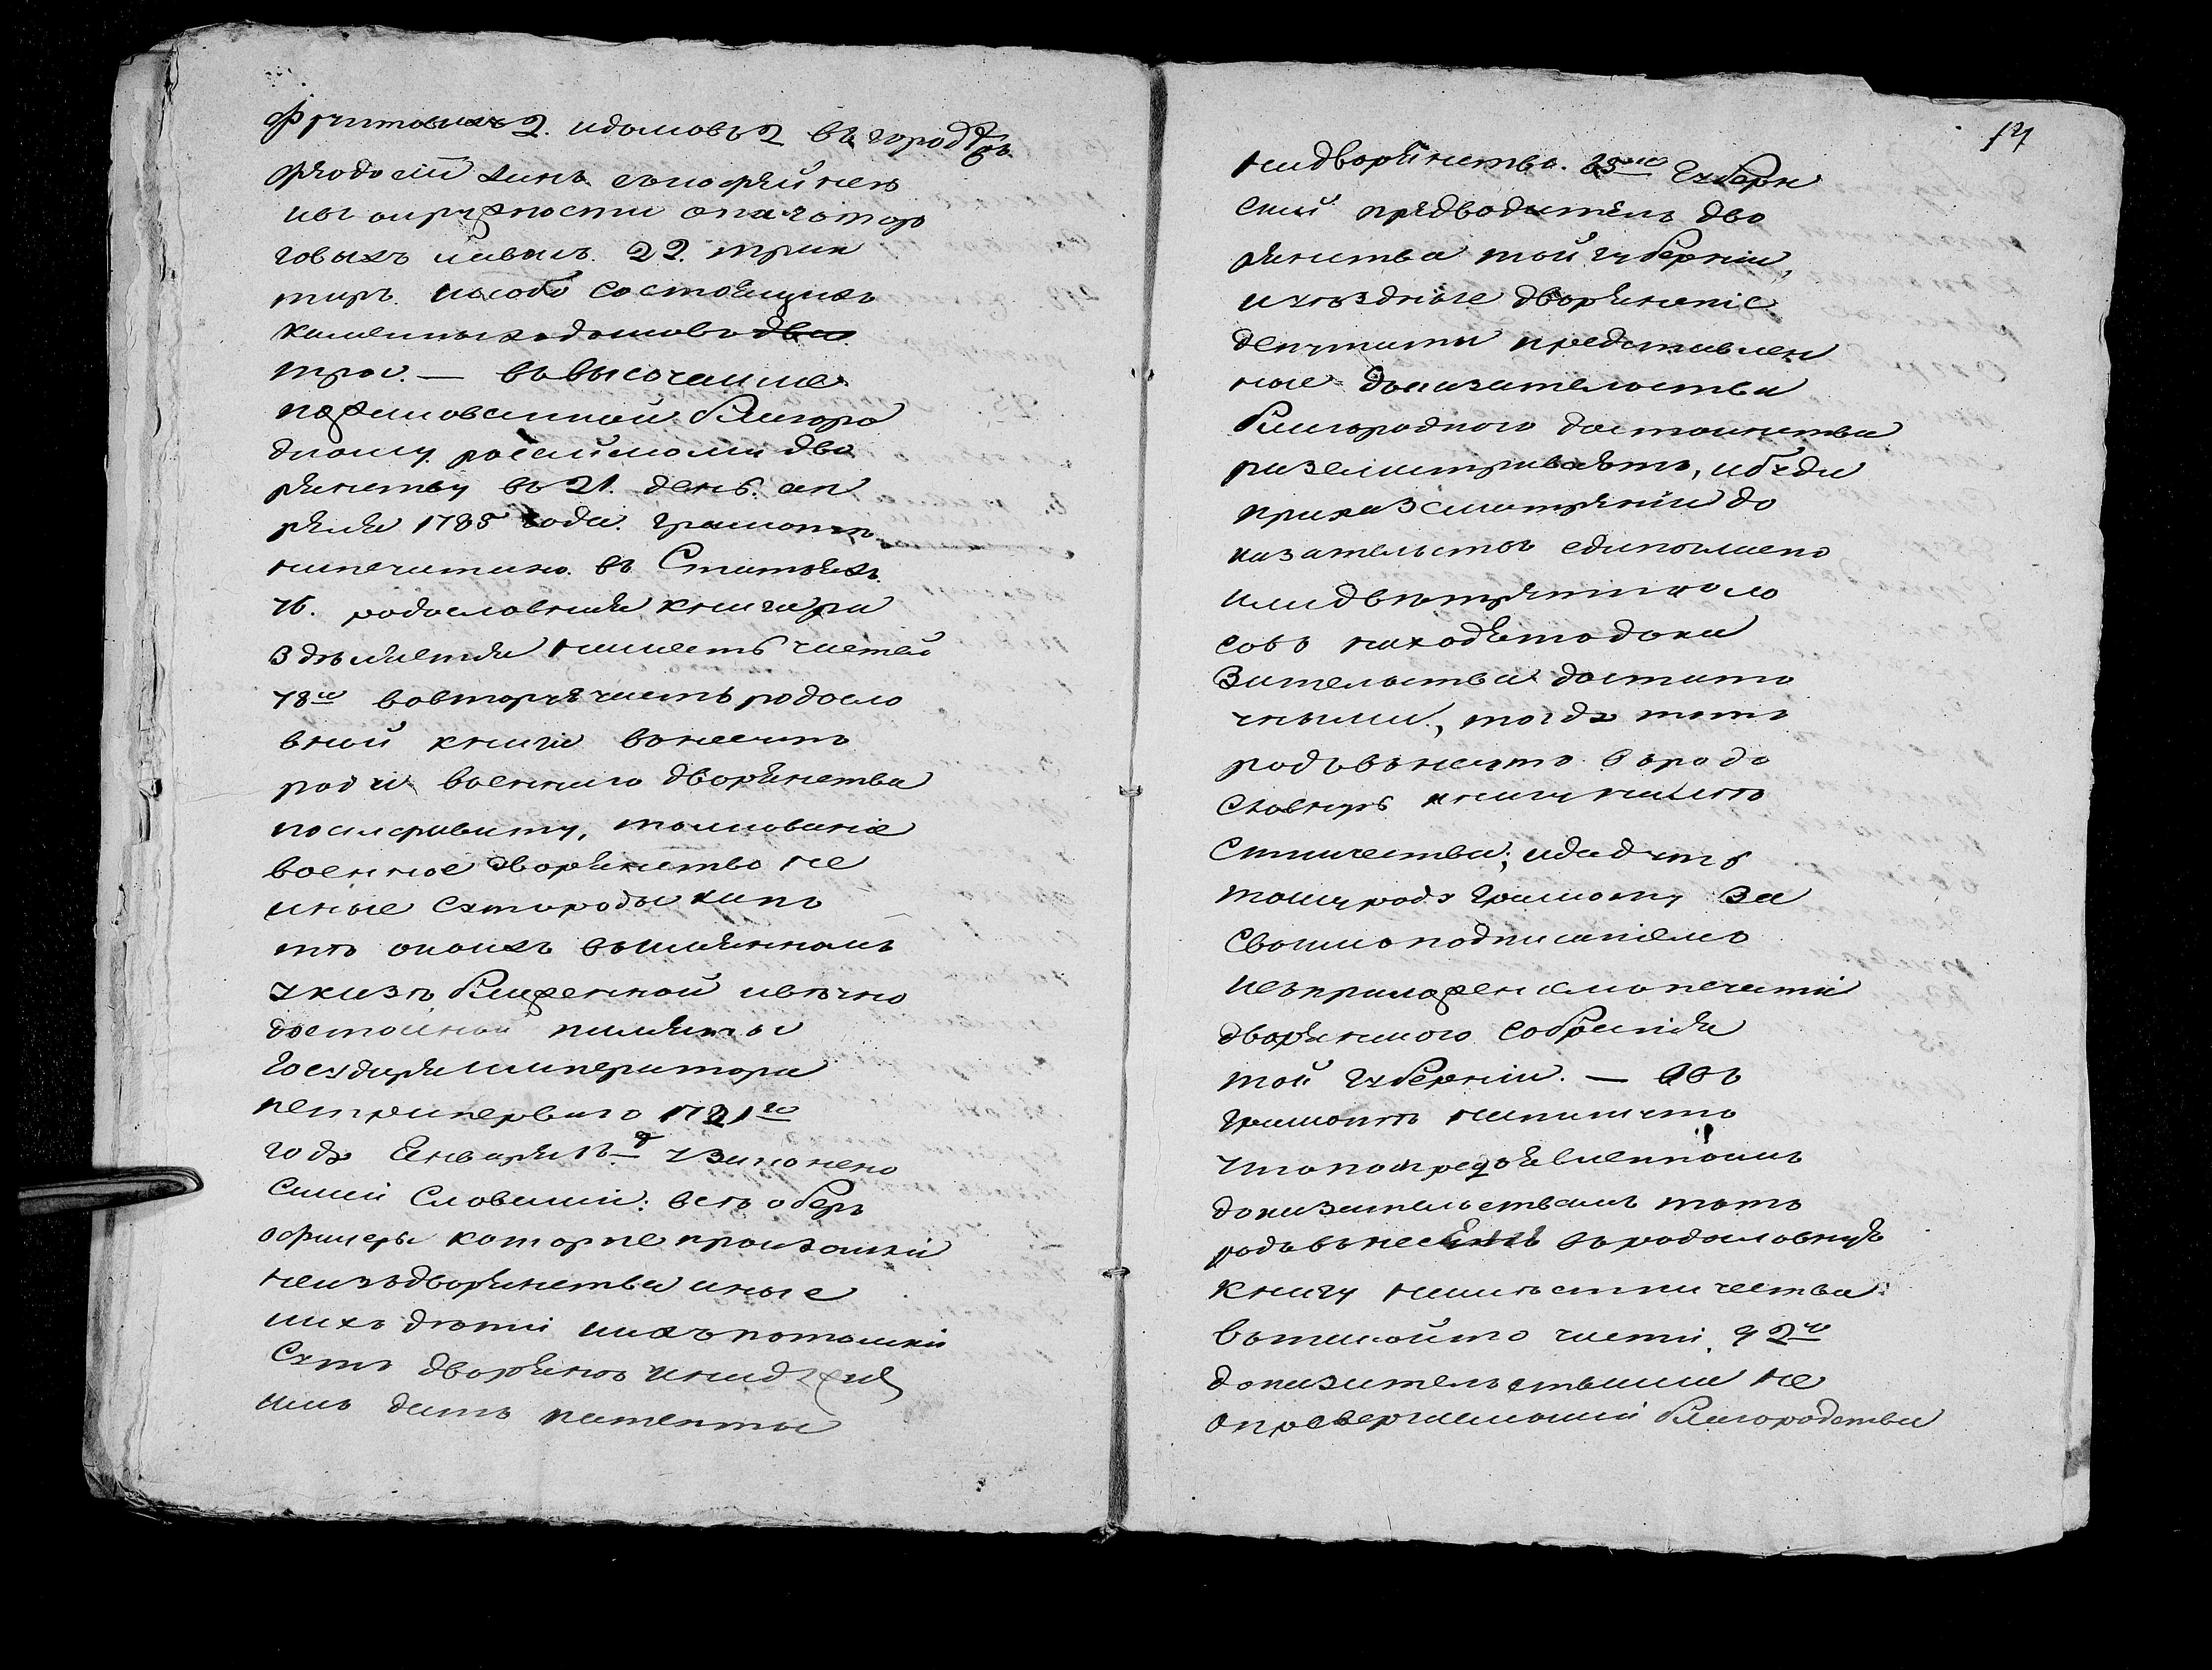 фруктовыхъ 2. идомовъ 2 въ городѣ
Феодосіи ханъ съкофейнею
ныхъ
говыхъ лавокъ. 22. трак
тиръ. иособо состоящихъ
каменныхъ домовъ два
три. — въвысочайше
пожалованной благоро
дному россійскому дво
рянству въ 21. день. ап
реля 1785 года. грамотѣ
напечатано. въ Статьяхъ.
76. родословная книга ра
здѣляется нашесть частей
78я вовторую часть родосло
вной книги внесутъ
роды военнаго дворянства
поалфавиту, толкованіе
военное дворянство не
иные суть роды какъ
тѣ окоихъ въимянномъ
указѣ блаженной ивѣчно
достойной памяти
Государя императора
петра перваго 1721го
года Генваря 16д узаконено
сими словами: всѣ оберъ
офицеры которые произошли
неизъдворянства иные
ихъ дѣти ихъпотомки
суть дворяне инадлежитъ
имъ дать патенты
17
надворянство. 85ое Губерн
скій предводитель дво
рянства той губерніи,
иуѣздные дворянскіе
депутаты представлен
ные доказательства
благороднаго достоинства
разсматриваютъ, ибуди
приразсмотреніи до
казательствъ единогласно
илидвѣтрети голо
совъ находятъ дока
зательства достато
чными, тогда тотъ
родъвънесутъ въродо
словную книгу намѣ
стничества; идадутъ
томуроду грамоту за
своимъ подписаніемъ
исъприложеніемъ печати
дворянскаго собранія
той губерніи. — въ
грамотѣ напишутъ
чтопо предъявленнымъ
доказательствамъ тотъ
родъвънесенъ въродословную
книгу намѣстничества
вътакойто части. 92е
доказательствами не
опровергаемыми благородства